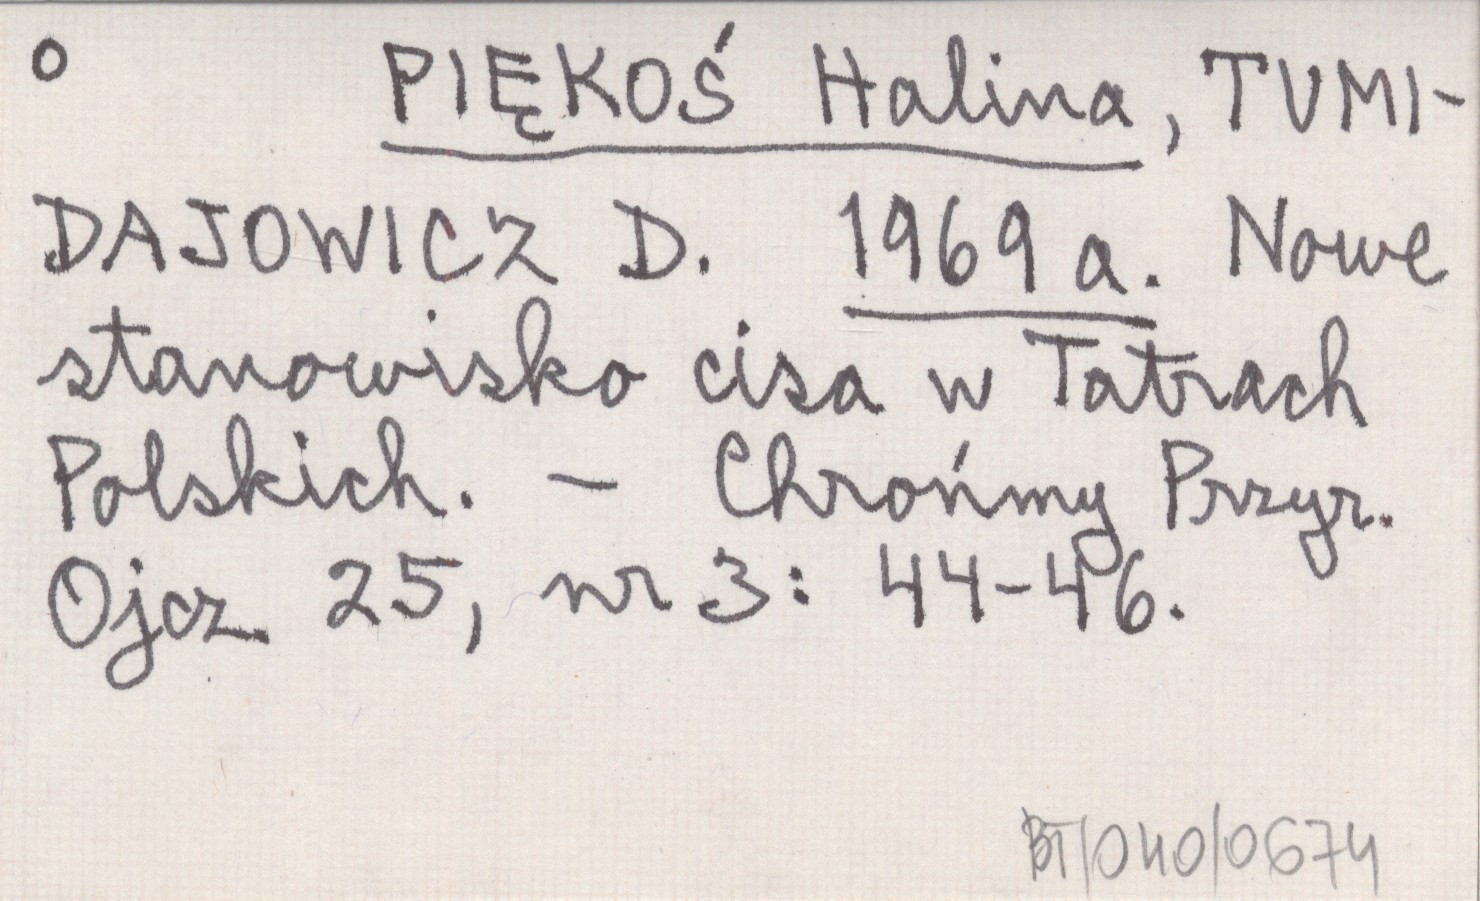 o PIĘKOŚ Halina, TUMI-
DAJOWICZ D. 1969 a. Nowe
stanowisko cisa w Tatrach
Polskich. – Chrońmy Przyr.
Ojcz 25, nr 3: 44-46.
BT/040/0674